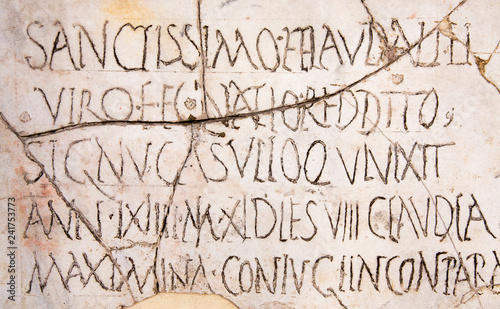 SANCTISSIMO·ET LAUDABILI
VIRO·EGNATIO REDDITO
SIGNU CASULIO QUIVIXIT
ANN·LXIII·M·XI DIES VIII CLAUDIA
MAXIMINA·CONIUGI INCONPARA
241753773